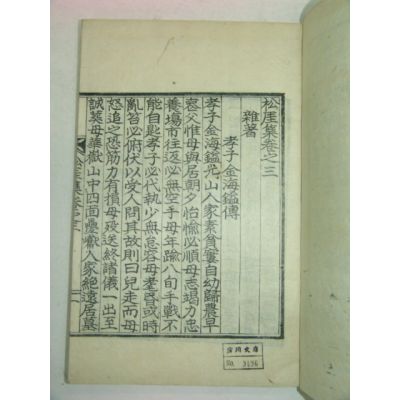 松厓集卷之三
雜著
孝子金海鑑傳
孝子金海鑑光山人家素貧窶自幼歸農早
喪父惟母與居朝夕怡愉必順母志竭力忠
養場市往返必無空手母年踰八旬手戰不
能自匙孝子必代執少無怠容母耄昏或時
亂笞必俯伏以受人問其故則曰兒走而母
怒追之恐筋力有損母歿送終諸儀一出至
誠葬母華嶽山中四面農嶽人家絶遠居墓
松厓集卷之三
NO. 3136